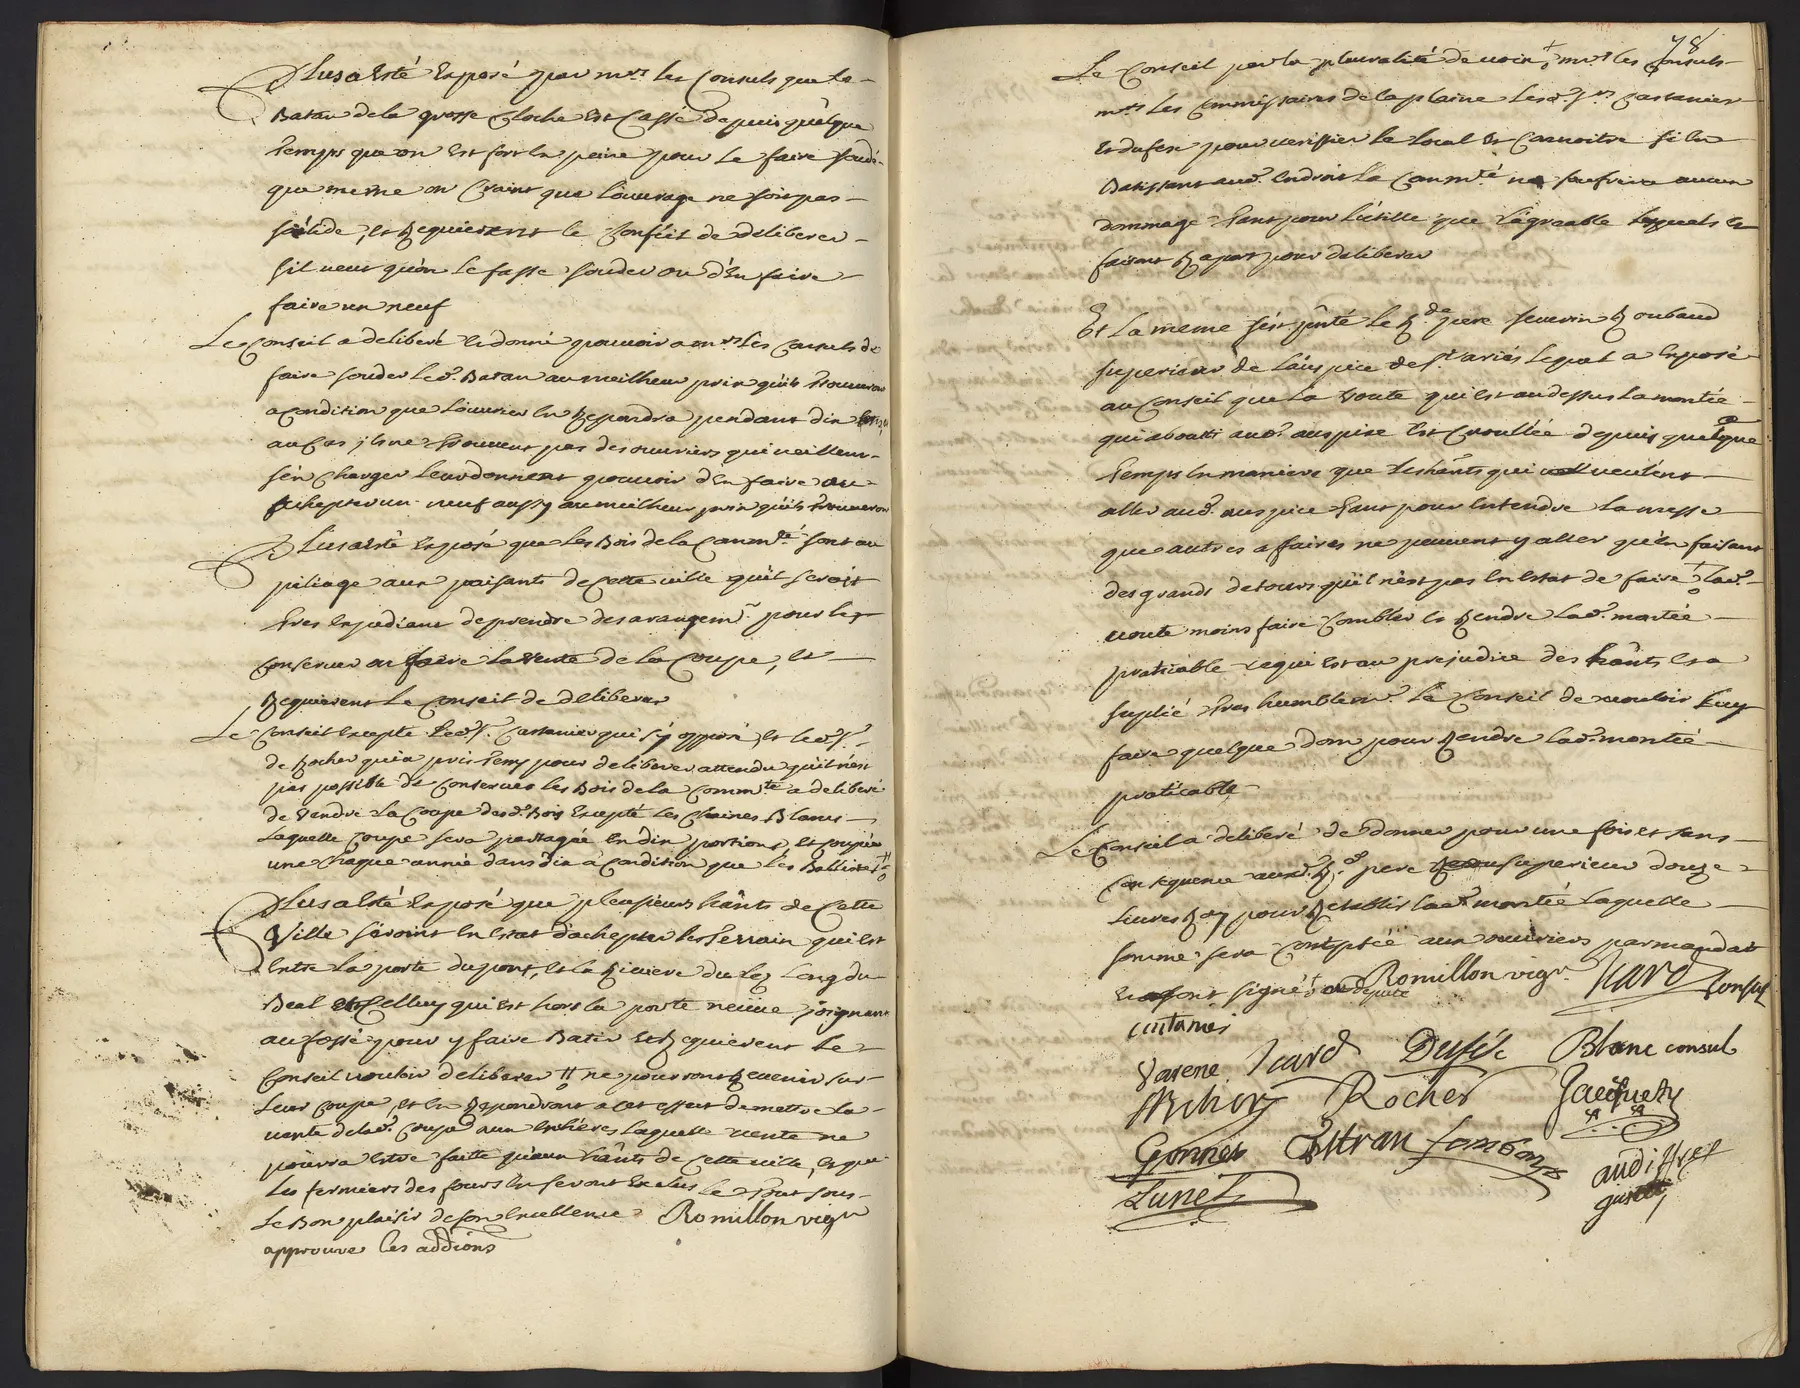 Plus a esté exposé par mrs les Consuls que le
Batan de la grosse Cloche est Cassé depuis quelque
temps que on est fort en peine pour le faire soudé
que meme on Craint que l'ouvrage ne soit pas
solide, et Requierent le Conseil de deliberer
s'il veut qu'on le fasse souder ou d'En faire
faire un neuf
Le Conseil a deliberé et donné pouvoir a mrs les Consuls de
faire souder led. Batan au meilheur prix qu'ils trouveron
a Condition que l'ouvrier En Repondra pendant dix
au Cas ils ne trouvent pas des ouvriers qui veilleur
s'en Charger leur donnent pouvoir d'En faire ou
achepter un neuf aussy au meilheur prix qu'ils trouveron
Plus a Esté Exposé que les Bois de la Commté sont au
pillage aux paisants de Cette ville qu'il seroit
tres Expediant de prendre des arangemt pour les
Conserver ou faire la vente de la Coupe, et
Requierent le Conseil de deliberer
Le Conseil Excepté led. Sr. Castanier qui s'y opposé, et led. Sr.
de Rocher qui a pris temps pour deliberer attendu qu'il n'est
pas possible de Conserver les Bois de la Commté a deliberé
de Vendre la Coupe desd. Bois Excepté les Chaines Blancs
laquelle Coupe sera partagée en dix portions et Coupée
une Chaque année dans dix a Condition que les
Plus a Esté Exposé que plusieurs hants de Cette
Ville seroint en Estat d'achepter les Terrain qui Est
Entre la porte du pont, et la Riviere du Lez Long du
Beal et Celluy qui Est hors la porte neuve joignant
au fossé pour y faire Batir et Requierent le
Conseil vouloir deliberer ne pourront Revenir sur
leur Coupe, et en Repondront a cet effet de mettre la
vente de lad. Coupe aux Encheres laquelle vente ne
pourra Estre faite qu'aux hants de Cette ville, et que
les fermiers des fours En seront Exclus le tout sous
le Bon plaisir de son Excellence Romillon vigr
approuve les additions
78
Le Conseil par la pluralité de voix mrs les Consuls
mrs les Commissaires de la plaine lesd. Srs Castanier
et dufex pour verifier le local et Connoitre si En
Batissant aud. Endroit la Commté ne soufrira aucun
dommage tant pour l'utille que l'agreable lesquels En
faisant Raport pour deliberer
Et la meme s'est p'nté le Rd pere severin Roubaud
superieur de l'auspice de St. lequel a Exposé
au Conseil que la voute qui Est au dessus la montée
qui abouti aud. auspice Est Croullée depuis quelque
temps En maniere que les hants qui veulent
aller aud. auspice tant pour Entendre la messe
que autres affaires ne peuvent y aller qu'En faisant
des grands detours qu'il n'est pas En Estat de faire lad.
voute moins faire Combler et Rendre lad. montée
praticable ce qui Est au prejudice des hants et a
suplié tres humblemt. le Conseil de vouloir luy
faire quelque dom pour Rendre lad. montée
praticable
Le Conseil a deliberé de donner pour une fois et sans
Consequence aud. Rd. pere superieur douze
livres Roy pour Retablir lad. montée laquelle
somme sera Comptée aux ouvriers par mandat
et ont signé Romillon vigr Icard Consul
député
Castanier
Varene Icard Dufés Blanc consul
Rocher Jacquety
Gonnet Estran
Lunel audiffret